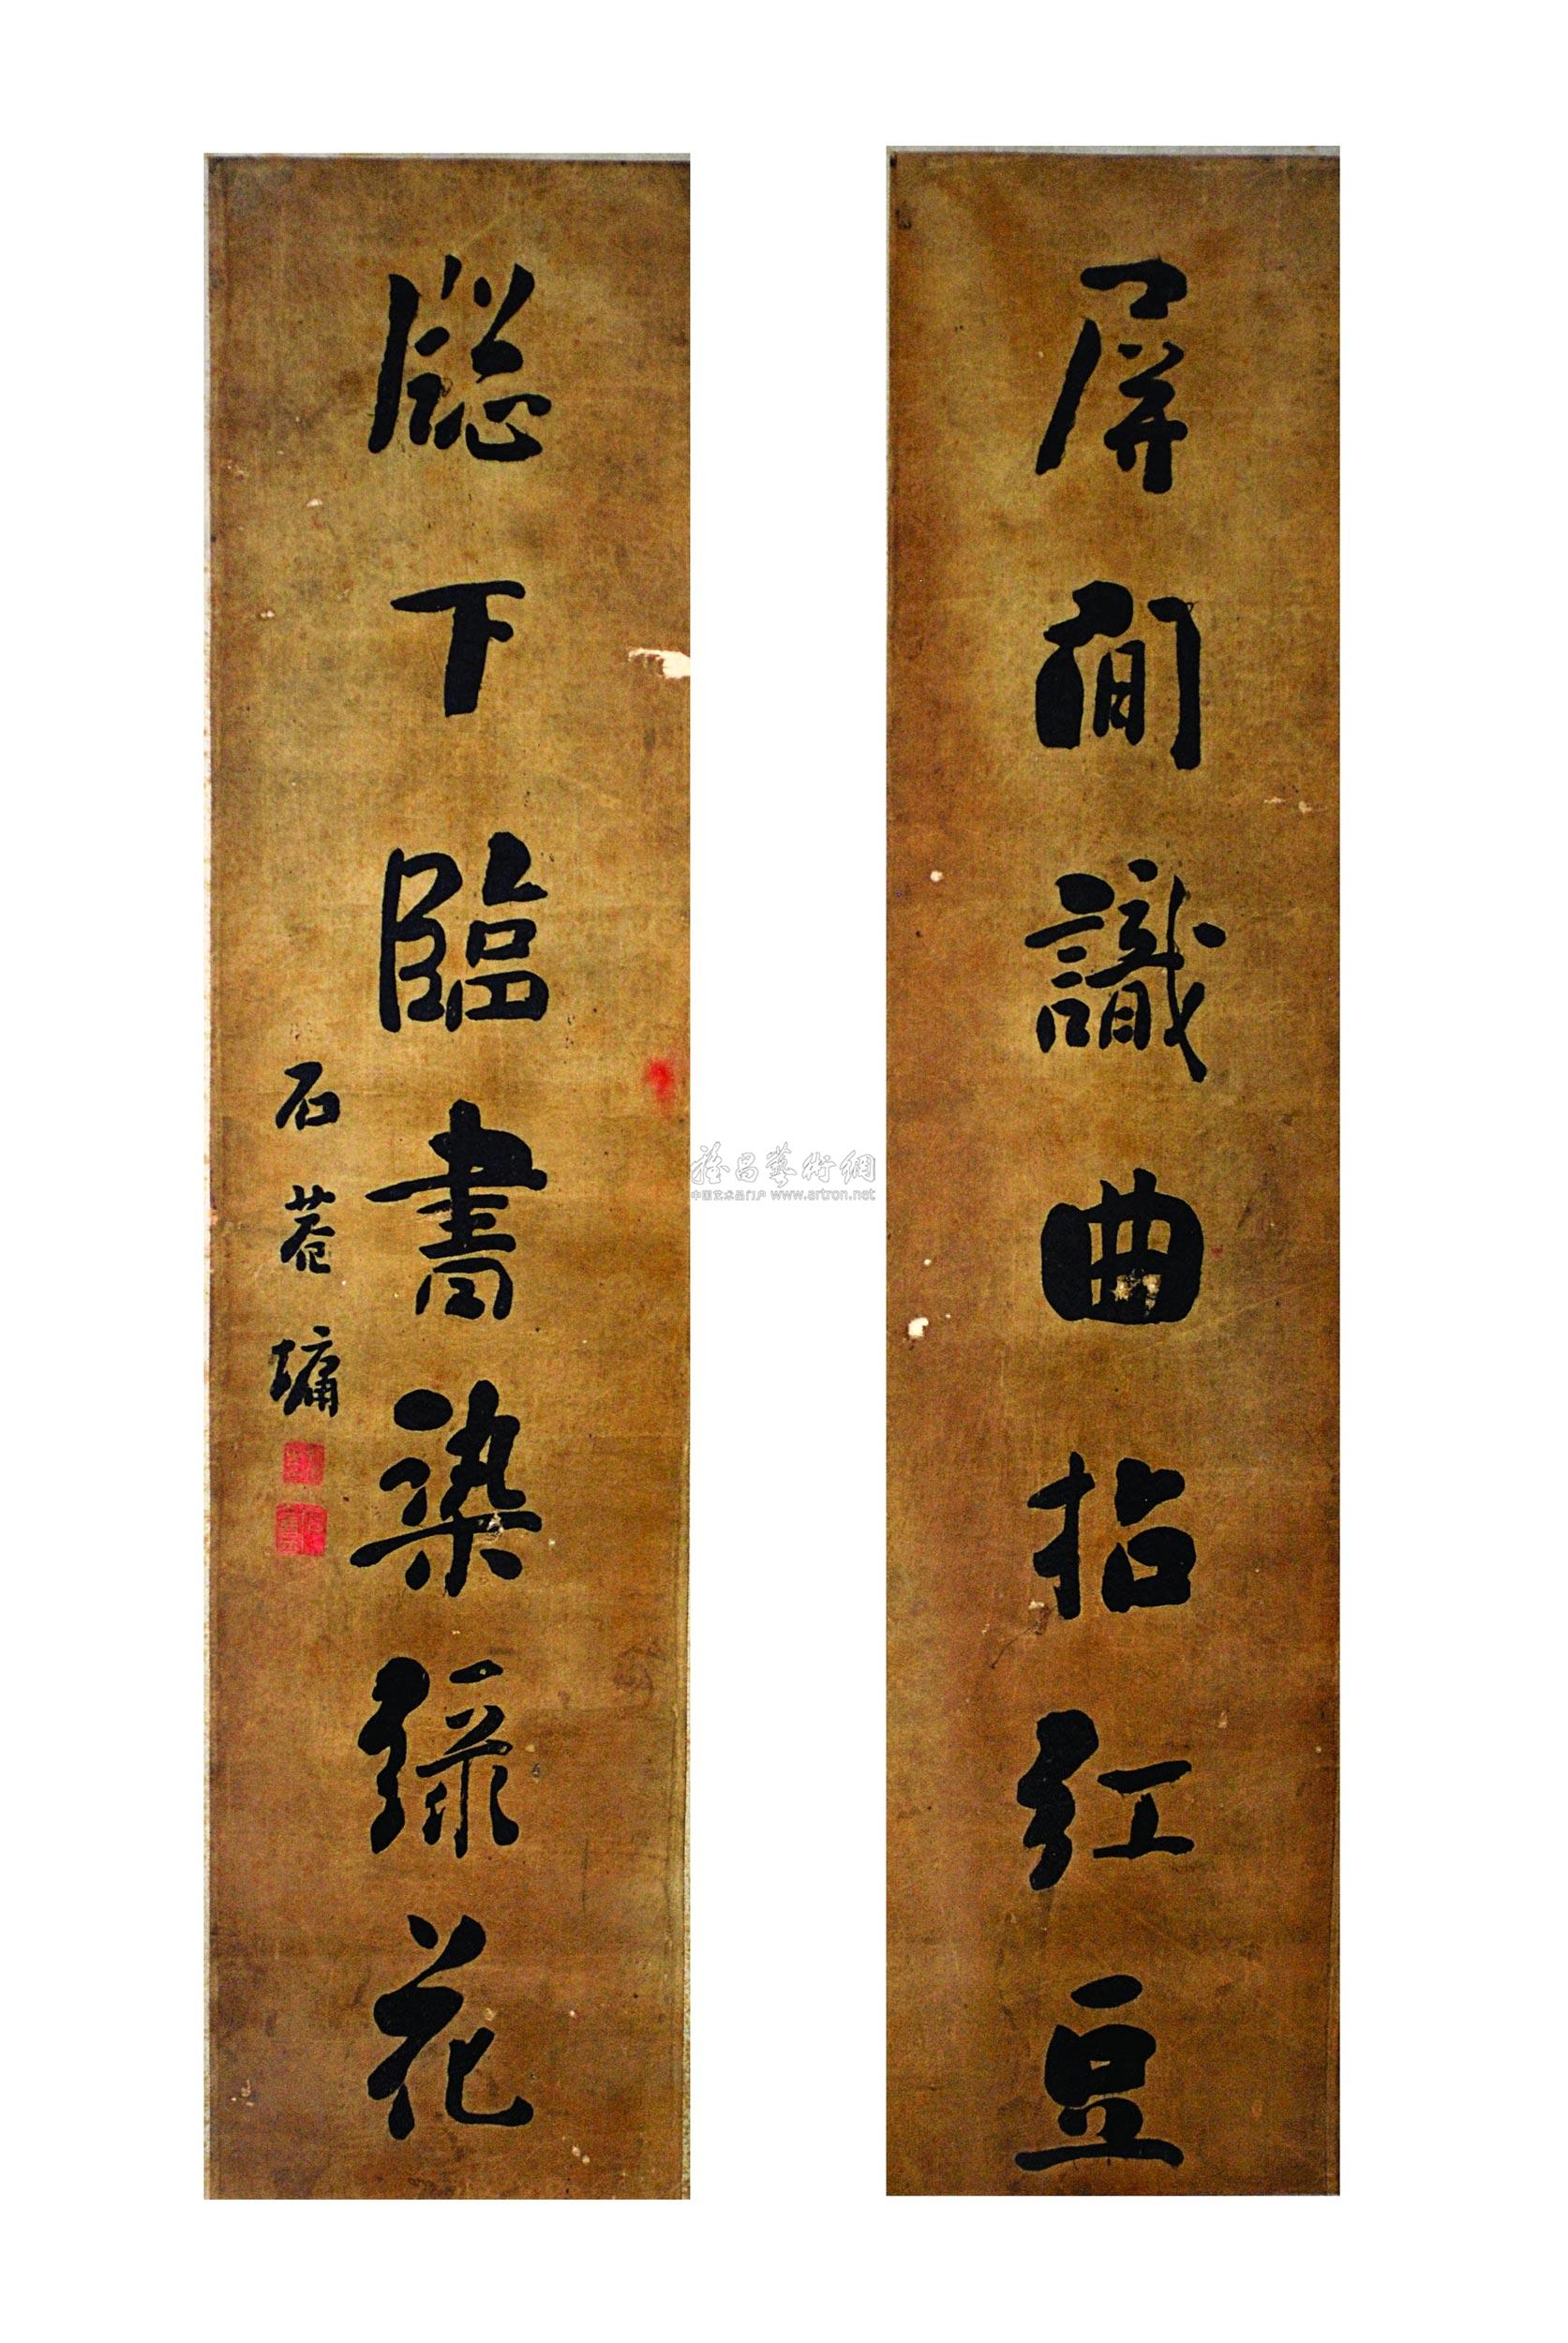 屏間識曲拈紅豆
牕下臨書染綠花
石菴墉
雅昌藝術網
中国艺术品门户 www.artron.net